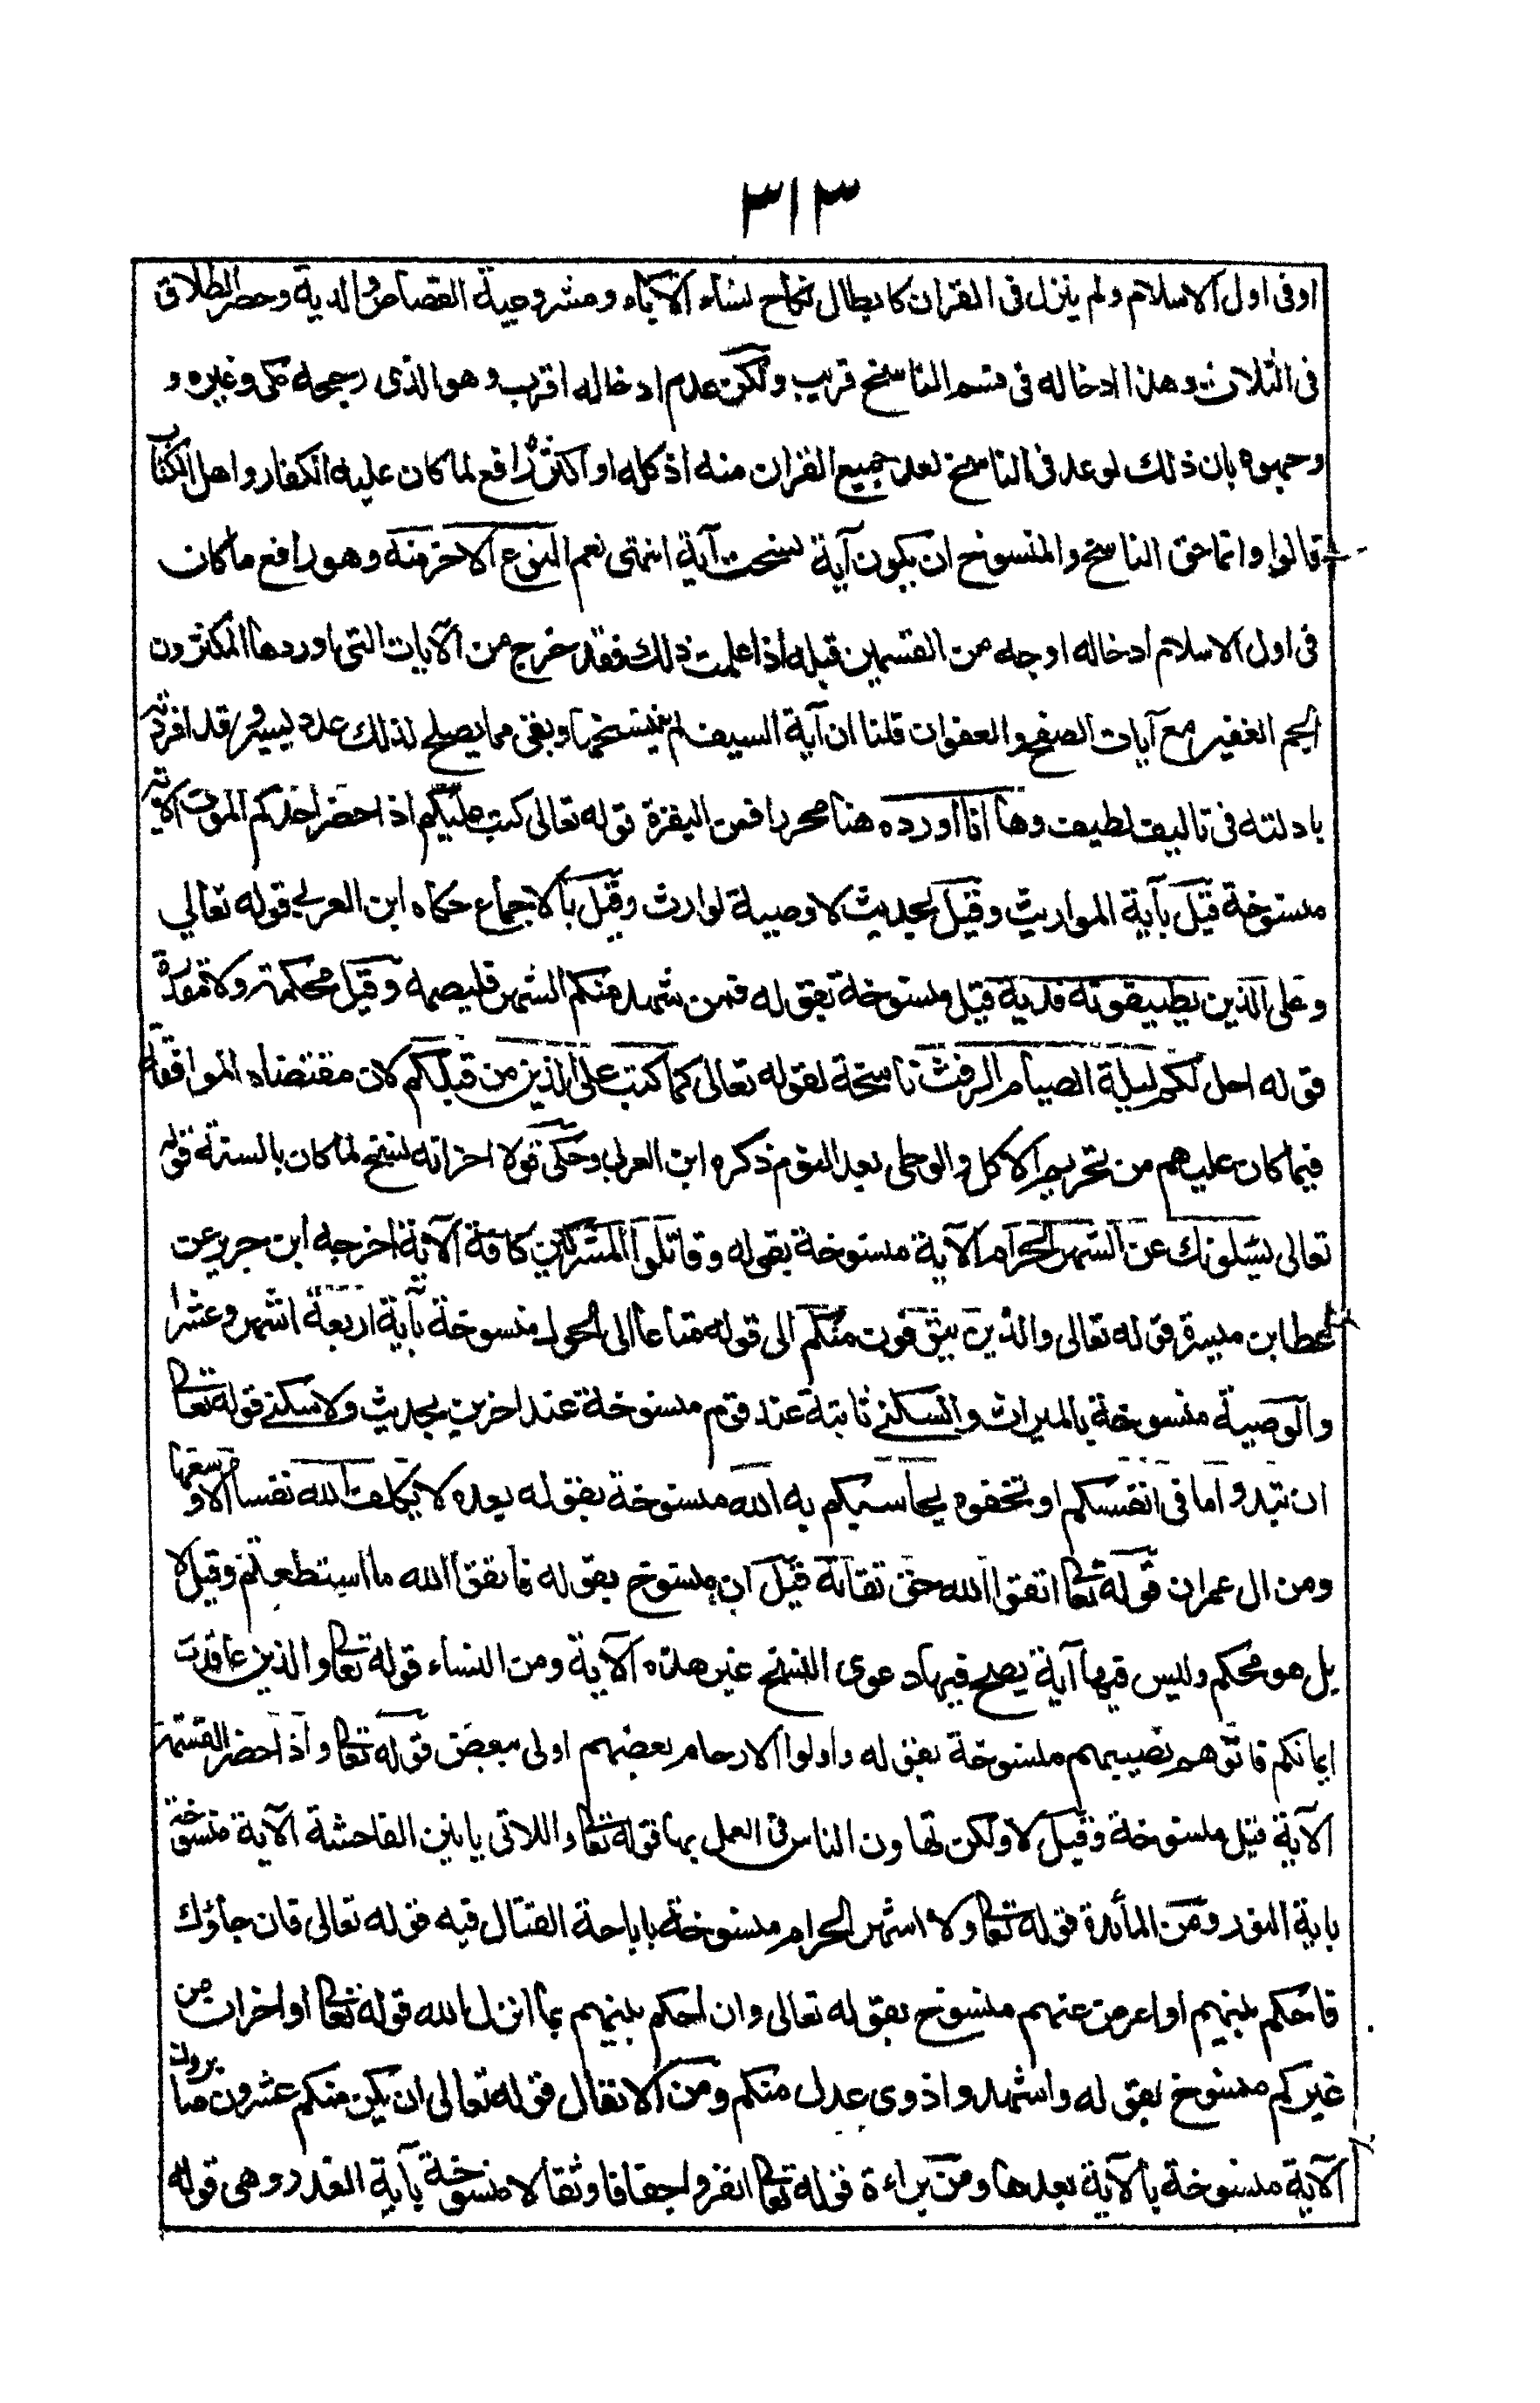 ٣١٣
او فى اول الاسلام ولم ينزل فى القران كابطال نكاح نساء الآباء ومشروعية القصاص والدية وحصر الطلاق
فى الثلاث وهذا ادخاله فى قسم الناسخ قريب ولكن عدم ادخاله اقرب وهو الذى رجحه مكى وغيره و
وجهوه بان ذلك لو عد فى الناسخ لعد جميع القران منه اذ كله او اكثره رافع لما كان عليه الكفار واهل الكتاب
قالوا وانما حق الناسخ والمنسوخ ان يكون آية نسخت آية انتهى نعم النوع الاخر منه وهو رافع ما كان
فى اول الاسلام ادخاله اوجه من القسمين قبله اذا علمت ذلك فقد خرج من الآيات التى اوردها المكثرون
الجم الغفير مع آيات الصفح والعفو ان قلنا ان آية السيف لم تنسخها وبقى مما يصلح لذلك عدد يسير وقد افردته
بادلته فى تاليف لطيف وها انا اورده هنا محررا فمن البقرة قوله تعالى كتب عليكم اذا حضر احدكم الموت الاية
منسوخة قيل بآية المواريث وقيل بحديث لا وصية لوارث وقيل بالاجماع حكاه ابن العربي قوله تعالي
وعلى الذين يطيقونه فدية قيل منسوخة بقوله فمن شهد منكم الشهر فليصمه وقيل محكمة ولا مقدرة
قوله احل لكم ليلة الصيام الرفث ناسخة لقوله تعالى كما كتب على الذين من قبلكم لان مقتضاه الموافقة
فيما كان عليهم من تحريم الاكل والوطى بعد النوم ذكره ابن العربي وحكى قولا اخر انه نسخ لما كان بالسنة قوله
تعالى يسئلونك عن الشهر الحرام الآية منسوخة بقوله وقاتلوا المشركين كافة الآية اخرجه ابن جرير عن
عطا بن ميسرة قوله تعالى والذين يتوفون منكم الى قوله متاعا الى الحول منسوخة بآية اربعة اشهر وعشرا
والوصية منسوخة بالميراث والسكنى ثابتة عند قوم منسوخة عند اخرين بحديث ولا سكنى قوله تعالى
ان تبدوا ما فى انفسكم او تخفوه يحاسبكم به الله منسوخة بقوله بعده لا يكلف الله نفسا الا وسعها
ومن ال عمران قوله تعالى اتقوا الله حق تقاته قيل انه منسوخ بقوله فاتقوا الله ما استطعتم وقيل لا
بل هو محكم وليس فيها آية يصح فيها دعوى النسخ غير هذه الآية ومن النساء قوله تعالى والذين عاقدت
ايمانكم فاتوهم نصيبهم منسوخة بقوله واولوا الارحام بعضهم اولى ببعض قوله تعالى واذا حضر القسمة
الآية قيل منسوخة وقيل لا ولكن تهاون الناس فى العمل بها قوله تعالى واللاتى ياتين الفاحشة الآية منسوخة
باية النور ومن المائدة قوله تعالى ولا الشهر الحرام منسوخة باباحة القتال فيه قوله تعالى فان جاؤك
فاحكم بينهم او اعرض عنهم منسوخ بقوله تعالى وان احكم بينهم بما انزل الله قوله تعالى او اخران من
غيركم منسوخ بقوله واشهدوا ذوى عدل منكم ومن الانفال قوله تعالى ان يكن منكم عشرون صابرون
الآية منسوخة بالآية بعدها ومن براءة قوله تعالى انفروا خفافا وثقالا منسوخة بآية العذر وهى قوله